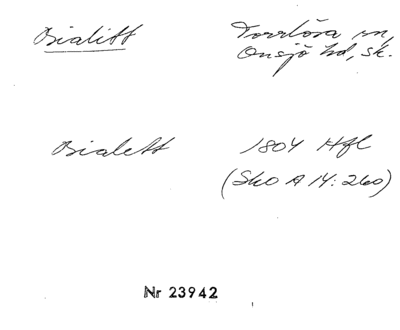 Bialitt Torrlösa sn,
Onsjö hd, sk.
Bialett 1804 Hfl
(Sko A 14:260)
Nr 23942